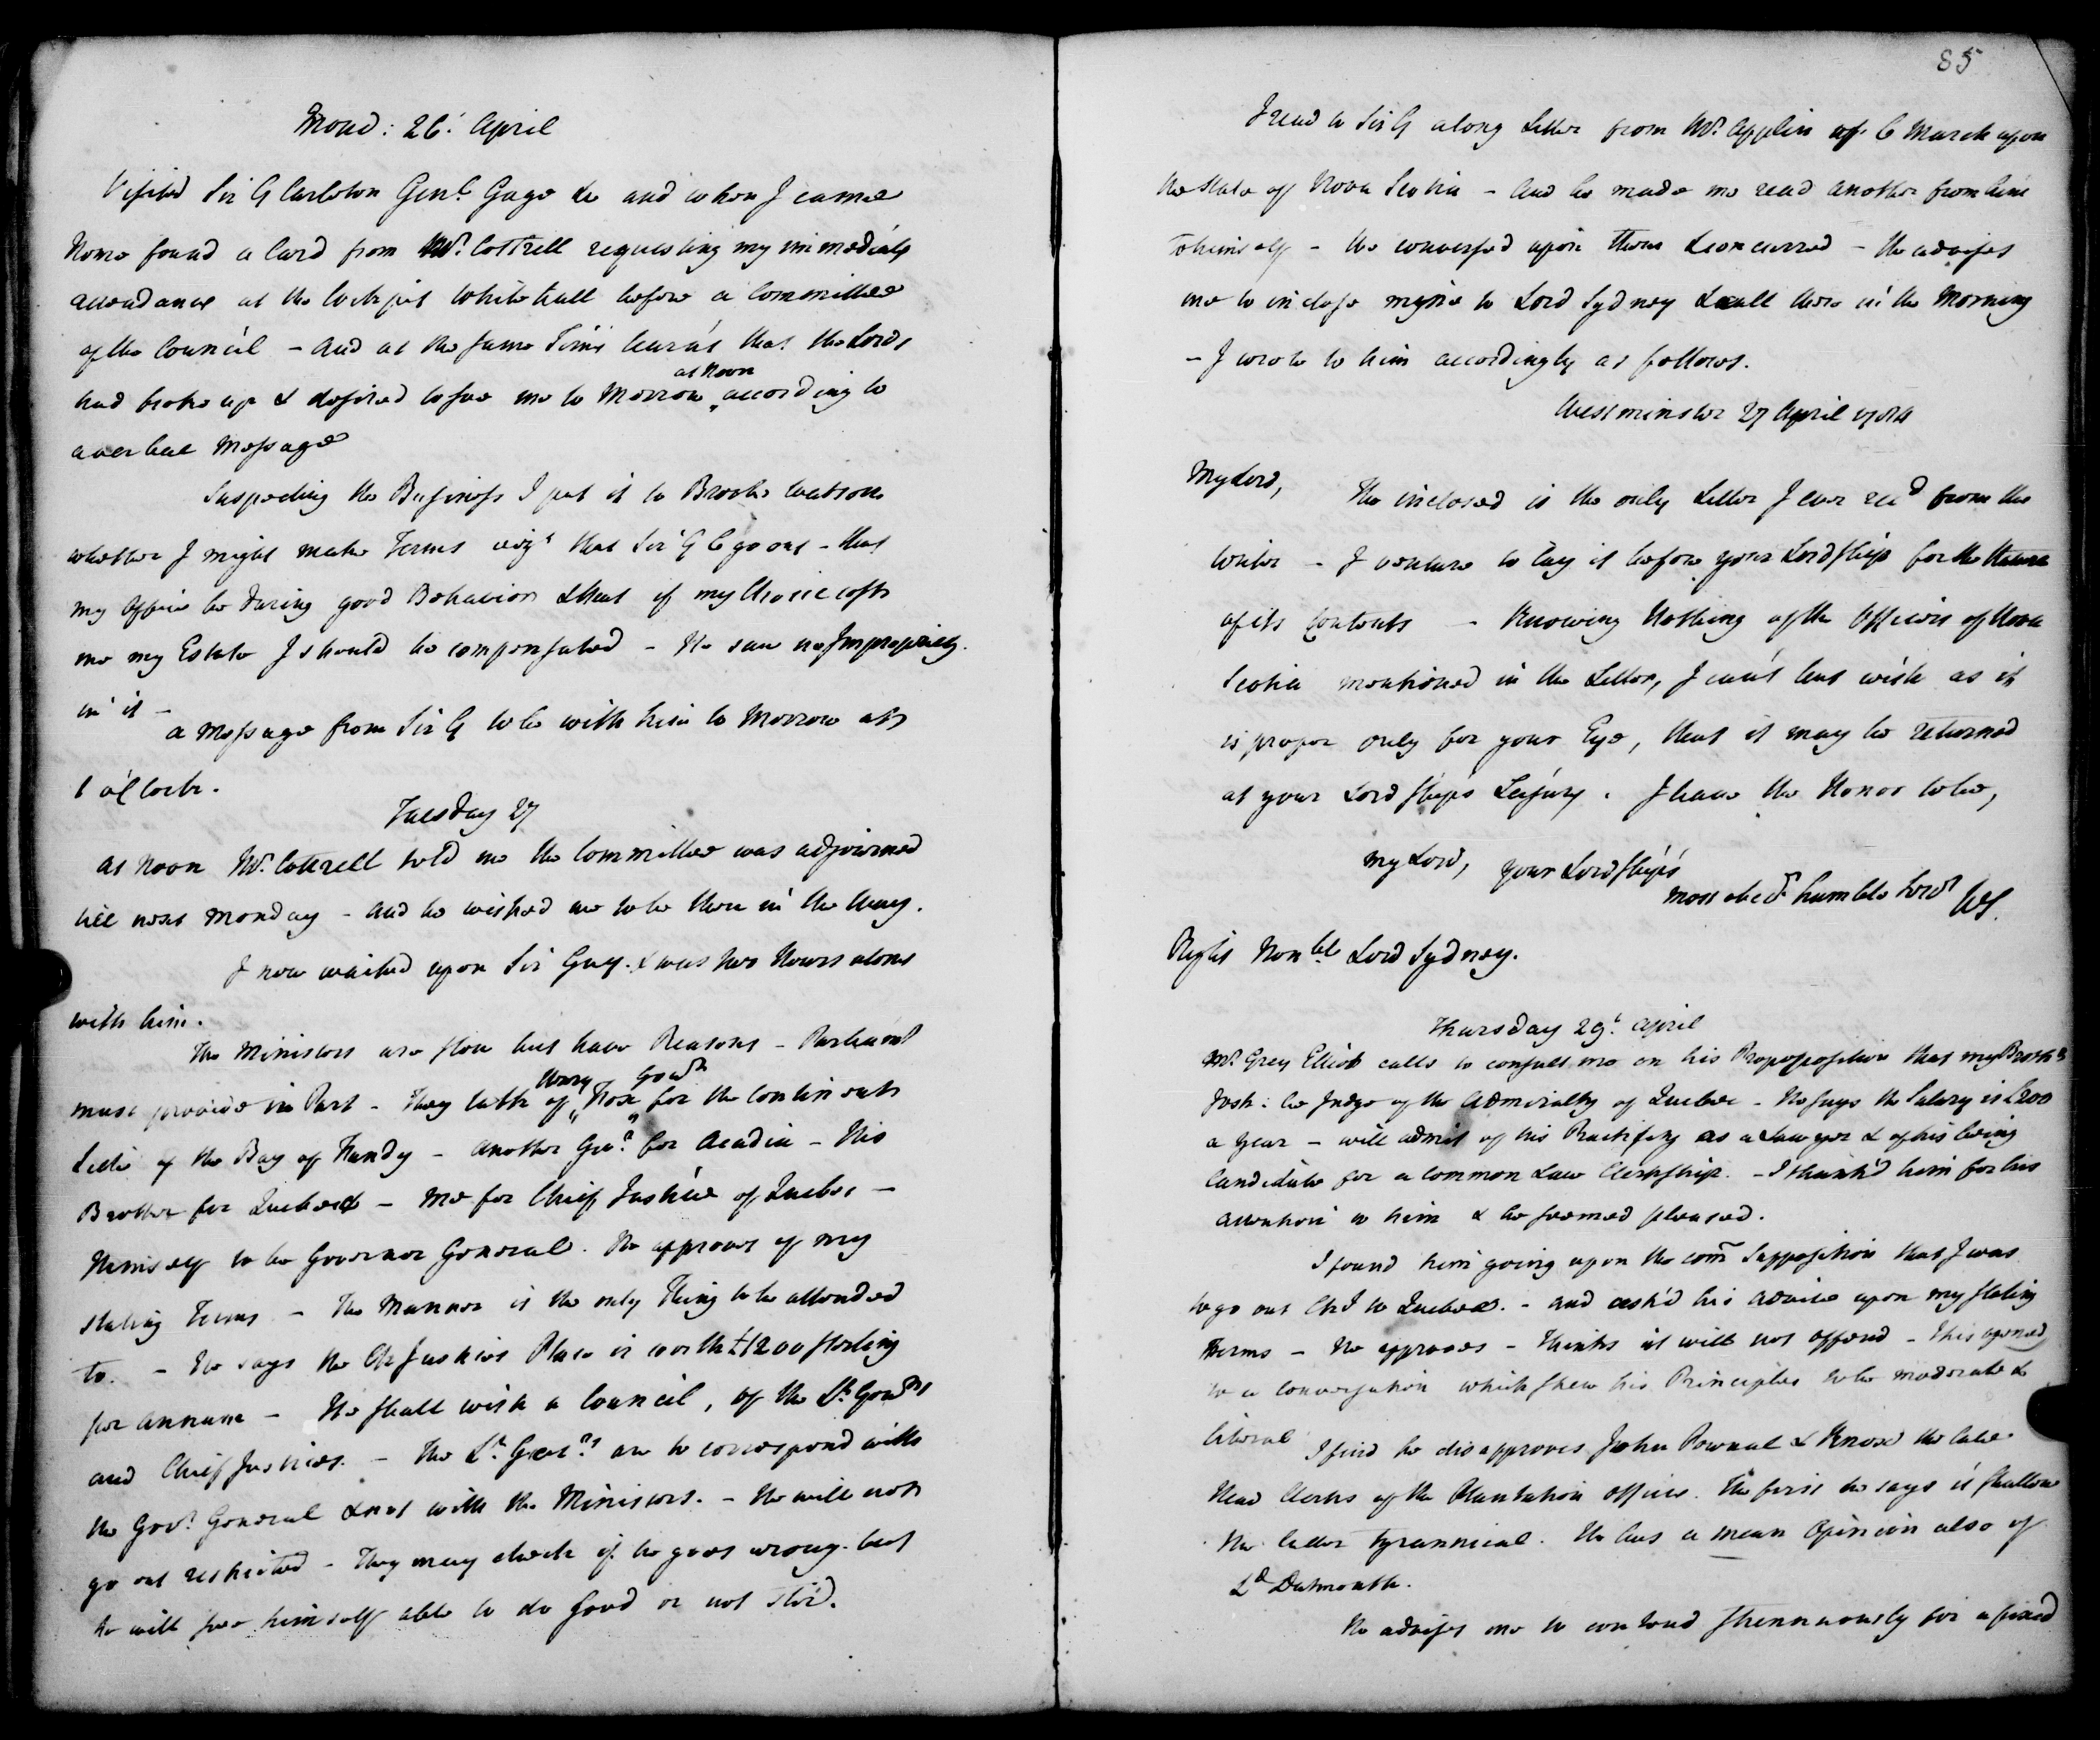 Mond: 26. April
Visited Sir G Carleton Genl. Gage &c and when I came
Home found a Card from Mr. Cottrell requesting my immediate
attendance at the Cockpit Whitehall before a Committee
of the Council - and at the same Time learnt that the Lords
at Noon
had broke up & desired to see me to Morrow according to
a verbal Message
Suspecting the Business I put it to Brook Watson
whether I might make Terms vizt that Sir G C go out - that
my Office be during good Behavior & that if my Choice costs
me my Estate I should be compensated - He saw no Impropriety
in it -
a Message from Sir G to be with him to Morrow at
1 o'Clock.
Tuesday 27
at Noon Mr. Cottrell told me the Committee was adjourned
till next Monday - and he wished me to be then in the Way.
I now waited upon Sir Guy. & was two Hours alone
with him.
The Ministers are slow but have Reasons - Parliamt
must provide in Part - They talk of Fox for the Continental
Henry Govr
Side of the Bay of Fundy - another Govr. for Acadia - His
Brother for Quebec - Me for Chief Justice of Quebec -
Himself to be Governor General. He approves of my
stating Terms - The Manner is the only Thing to be attended
to. - He says the Ch Justices Place is worth £1200 sterling
per annum - He shall wish a Council, of the Lt. Govrs
and Chief Justices. - The Lt. Govrs are to correspond with
the Govr. General & not with the Ministers. - He will not
go out restricted - They may check if he goes wrong. but
he will see himself able to do Good or not stir.
85
I read to Sir G a long Letter from Mr. Applin of 6 March upon
the State of Nova Scotia - And he made me read another from him
to himself - We conversed upon them & concurred - He advises
me to inclose mine to Lord Sydney & call there in the Morning
- I wrote to him accordingly as follows.
Westminster 27 April 1784
My Lord,
The inclosed is the only Letter I ever recd from the
Writer - I venture to lay it before your Lordship for the
of its Contents - Knowing Nothing of the Officers of Nova
Scotia mentioned in the Letter, I can't but wish as it
is proper only for your Eye, that it may be returned
at your Lordship's Leisure. I have the Honor to be,
my Lord, your Lordship's
most obedt humble Servt WS.
Right Honble Lord Sydney.
Thursday 29. April
Mr. Grey Elliot calls to consult me on his Proposition that my Brothr
Josh: be Judge of the Admiralty of Quebec - He says the Salary is £200
a year - will admit of his Practising as a Lawyer & of his being
Candidate for a Common Law Clerkship. - I thank'd him for his
attention to him & he seemed pleased.
I found him going upon the com Supposition that I was
to go out ChJ to Quebec. - and ask'd his advice upon my stating
Terms - He approves - Thinks it will not offend - This opened
to a Conversation which shew his Principles to be moderate &
liberal
I find he disapproves John Pownal & Knox the late
Head Clerks of the Plantation Office. The first he says is shallow
the latter tyrannical. He has a mean Opinion also of
Ld Dartmouth.
He advises me to contend strennuously for a fixed